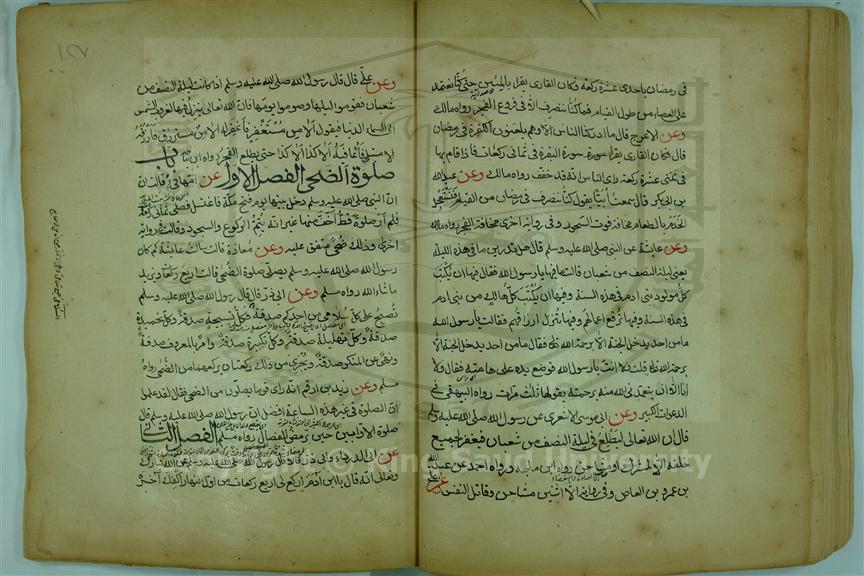 فى رمضان باحدى عشرة ركعة وكان القارئ يقرأ بالمئين حتى كنا نعتمد
على العصا من طول القيام فما كنا ننصرف الا فى فروع الفجر رواه مالك
وعن الاعرج قال ما ادركنا الناس الا وهم يلعنون الكفرة فى رمضان
قال وكان القارئ يقرأ سورة البقرة فى ثمانى ركعات فاذا قام بها
فى ثنتى عشرة ركعة راى الناس انه قد خفف رواه مالك وعن عبد الله
بن ابى بكر قال سمعت ابيا يقول كنا ننصرف فى رمضان من القيام فنستعجل
الخدم بالطعام مخافة فوت السحور وفى رواية اخرى مخافة الفجر رواه مالك
وعن عائشة عن النبى صلى الله عليه وسلم قال هل تدرين ما فى هذه الليلة
يعنى ليلة النصف من شعبان قالت ما فيها يا رسول الله فقال فيها ان يكتب
كل مولود بنى ادم فى هذه السنة وفيها ان يكتب كل هالك من بنى ادم
فى هذه السنة وفيها ترفع اعمالهم وفيها تنزل ارزاقهم فقالت يا رسول الله
ما من احد يدخل الجنة الا برحمة الله فقال ما من احد يدخل الجنة الا
برحمة الله ثلثا قلت ولا انت يا رسول الله فوضع يده على هامته فقال ولا
انا الا ان يتغمدنى الله منه برحمته يقولها ثلث مرات رواه البيهقى فى
الدعوات الكبير وعن ابى موسى الاشعرى عن رسول الله صلى الله عليه وسلم
قال ان الله تعالى ليطلع فى ليلة النصف من شعبان فيغفر لجميع
خلقه الا لمشرك او مشاحن رواه ابن ماجه ورواه احمد عن عبد الله
بن عمرو بن العاص وفى روايته الا اثنين مشاحن وقاتل النفس
وعن على قال قال رسول الله صلى الله عليه وسلم اذا كانت ليلة النصف من
شعبان فقوموا ليلها وصوموا يومها فان الله تعالى ينزل فيها لغروب الشمس
الى السماء الدنيا فيقول الا من مستغفر فاغفر له الا من مسترزق فارزقه
الا مبتلى فاعافيه الا كذا الا كذا حتى يطلع الفجر رواه ابن ماجه باب
صلوة الضحى الفصل الاول عن ام هانئ قالت ان
النبى صلى الله عليه وسلم دخل بيتها يوم فتح مكة فاغتسل فصلى ثمانى ركعات
فلم ار صلوة قط اخف منها غير انه يتم الركوع والسجود وقالت فى رواية
اخرى وذلك ضحى متفق عليه وعن معاذة قالت سالت عائشة كم كان
رسول الله صلى الله عليه وسلم يصلى صلوة الضحى قالت اربع ركعات ويزيد
ما شاء الله رواه مسلم وعن ابى ذر قال قال رسول الله صلى الله عليه وسلم
تصبح على كل سلامى من احدكم صدقة فكل تسبيحة صدقة وكل تحميدة
صدقة وكل تهليلة صدقة وكل تكبيرة صدقة وامر بالمعروف صدقة
ونهى عن المنكر صدقة ويجزئ من ذلك ركعتان يركعهما من الضحى رواه
مسلم وعن زيد بن ارقم انه راى قوما يصلون من الضحى فقال لقد علموا
ان الصلوة فى غير هذه الساعة افضل ان رسول الله صلى الله عليه وسلم قال
صلوة الاوابين حين ترمض الفصال رواه مسلم الفصل الثانى
عن ابى الدرداء وابى ذر قالا قال رسول الله صلى الله عليه وسلم عن الله تبارك
وتعالى انه قال يا ابن آدم اركع لى اربع ركعات من اول النهار اكفك آخره
© King Saud University